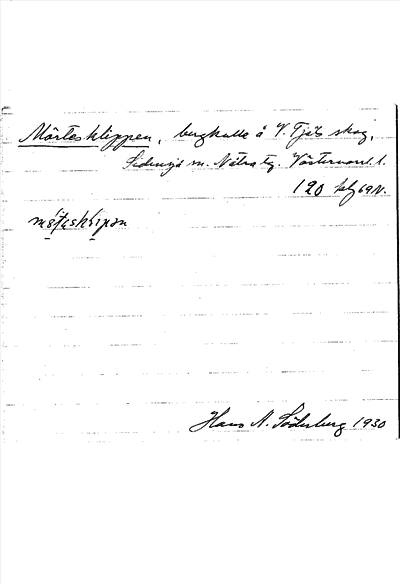 Mörtesklippen, bergkulle å V. Tjäls skog,
Sidensjö sn. Nätra tg. Västernorrl. l.
120 kbl 69 N.
Hans N. Söderberg 1930